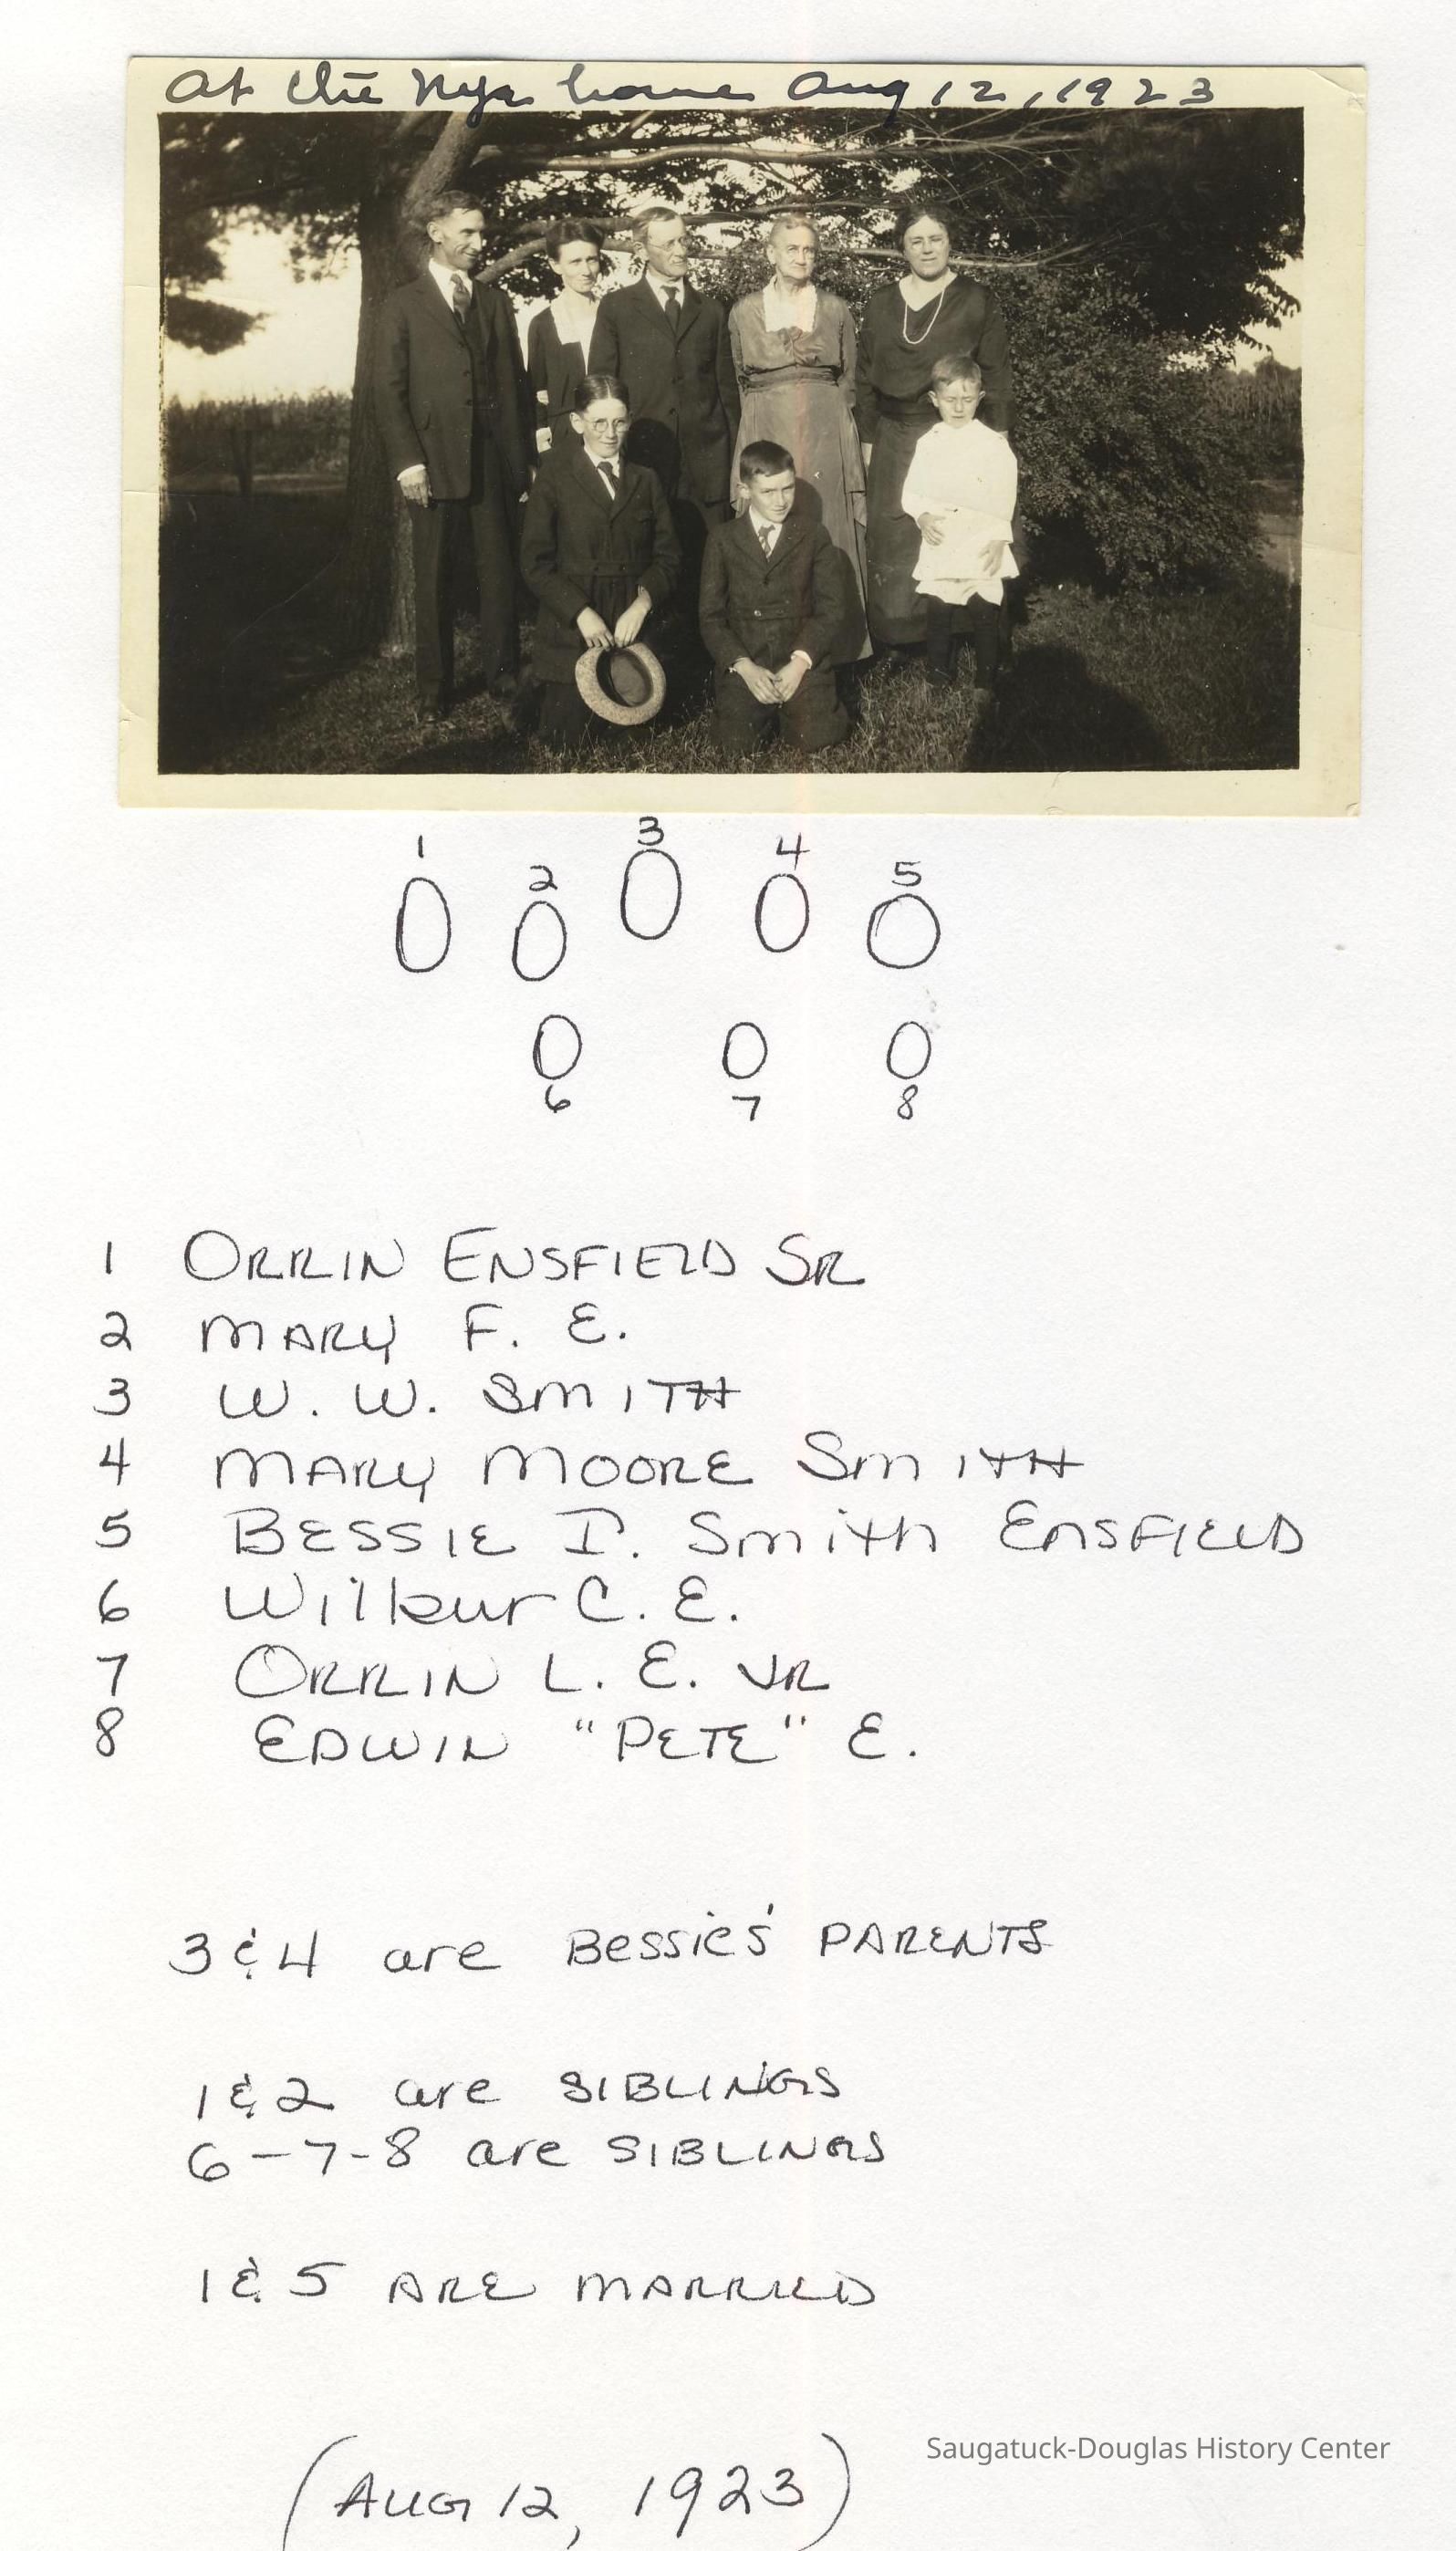 At the Nye home Aug 12, 1923
1
2
3
4
5
6
7
8
1 ORRIN ENSFIELD SR
2 MARY F. E.
3 W. W. SMITH
4 MARY MOORE SMITH
5 BESSIE I. Smith ENSFIELD
6 Wilbur C. E.
7 ORRIN L. E. JR
8 EDWIN "PETE" E.
3 & 4 are BESSIE'S PARENTS
1 & 2 are SIBLINGS
6-7-8 are SIBLINGS
1 & 5 ARE MARRIED
(AUG 12, 1923)
Saugatuck-Douglas History Center